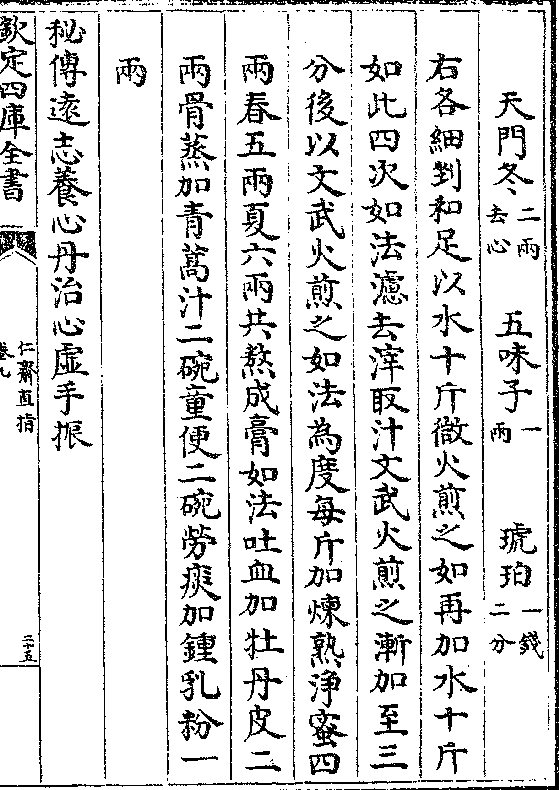 天門冬二兩去心　五味子一兩　琥珀一錢二分
右各細剉和足以水十斤微火煎之如再加水十斤
如此四次如法濾去滓取汁文武火煎之漸加至三
分後以文武火煎之如法為度每斤加煉熟淨蜜四
兩春五兩夏六兩共熬成膏如法吐血加牡丹皮二
兩骨蒸加青蒿汁二碗童便二碗勞痰加鍾乳粉一
兩
秘傳遠志養心丹治心虛手振
欽定四庫全書
仁齋直指
卷九
二十五